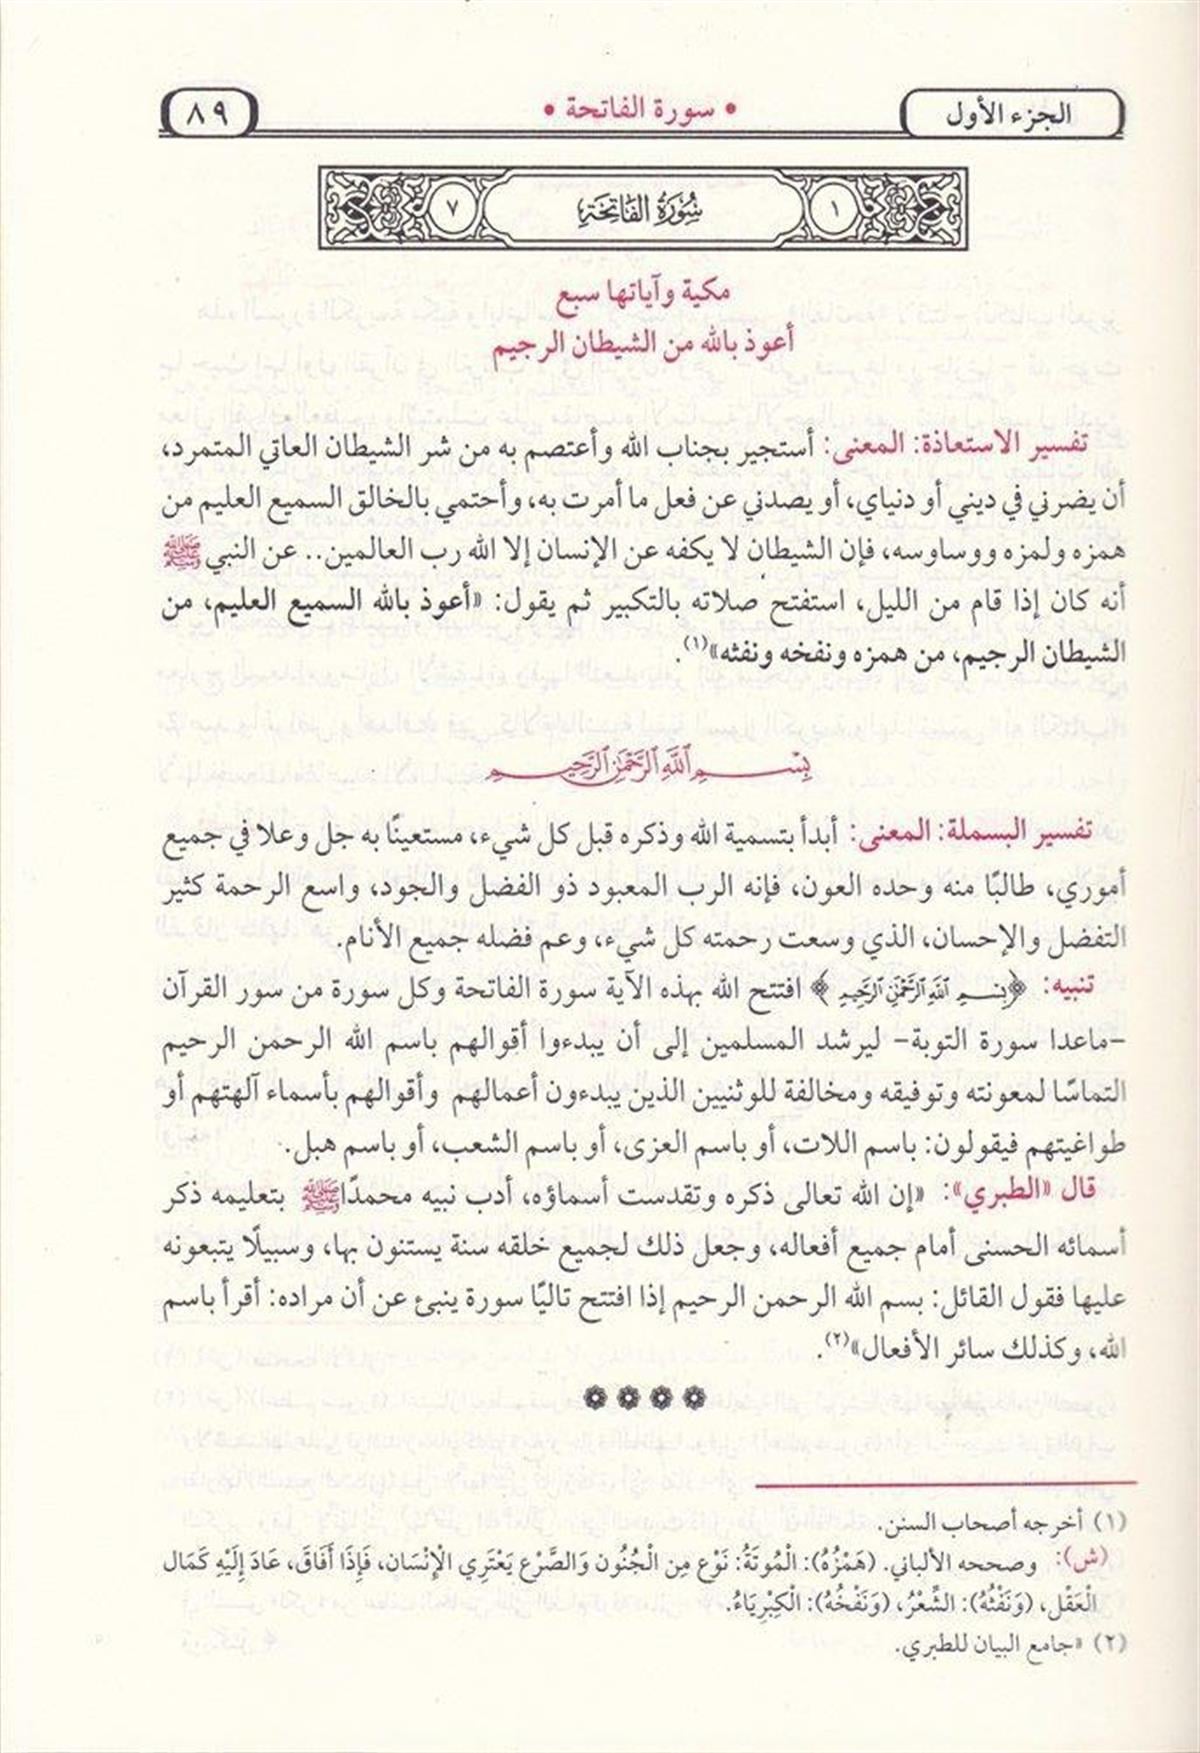 الجزء الأول
• سورة الفاتحة •
٨٩
١
سُورَةُ الفَاتِحَةِ
٧
مكية وآياتها سبع
أعوذ بالله من الشيطان الرجيم
تفسير الاستعاذة: المعنى: أستجير بجناب الله وأعتصم به من شر الشيطان العاتي المتمرد،
أن يضرني في ديني أو دنياي، أو يصدني عن فعل ما أمرت به، وأحتمي بالخالق السميع العليم من
همزه ولمزه ووساوسه، فإن الشيطان لا يكفه عن الإنسان إلا الله رب العالمين.. عن النبي ﷺ
أنه كان إذا قام من الليل، استفتح صلاته بالتكبير ثم يقول: «أعوذ بالله السميع العليم، من
الشيطان الرجيم، من همزه ونفخه ونفثه»(١).
بِسْمِ ٱللَّهِ ٱلرَّحْمَٰنِ ٱلرَّحِيمِ
تفسير البسملة: المعنى: أبدأ بتسمية الله وذكره قبل كل شيء، مستعينًا به جل وعلا في جميع
أموري، طالبًا منه وحده العون، فإنه الرب المعبود ذو الفضل والجود، واسع الرحمة كثير
التفضل والإحسان، الذي وسعت رحمته كل شيء، وعم فضله جميع الأنام.
تنبيه: ﴿بِسْمِ ٱللَّهِ ٱلرَّحْمَٰنِ ٱلرَّحِيمِ﴾ افتتح الله بهذه الآية سورة الفاتحة وكل سورة من سور القرآن
-ماعدا سورة التوبة- ليرشد المسلمين إلى أن يبدءوا أقوالهم باسم الله الرحمن الرحيم
التماسًا لمعونته وتوفيقه ومخالفة للوثنيين الذين يبدءون أعمالهم وأقوالهم بأسماء آلهتهم أو
طواغيتهم فيقولون: باسم اللات، أو باسم العزى، أو باسم الشعب، أو باسم هبل.
قال «الطبري»: «إن الله تعالى ذكره وتقدست أسماؤه، أدب نبيه محمدًا ﷺ بتعليمه ذكر
أسمائه الحسنى أمام جميع أفعاله، وجعل ذلك لجميع خلقه سنة يستنون بها، وسبيلًا يتبعونه
عليها فقول القائل: بسم الله الرحمن الرحيم إذا افتتح تاليًا سورة ينبئ عن أن مراده: أقرأ باسم
الله، وكذلك سائر الأفعال»(٢).
(١) أخرجه أصحاب السنن.
(ش): وصححه الألباني. (هَمْزُهُ): الْمُوتَةُ: نَوْع مِن الْجُنُون وَالصَّرْع يَعْتَرِي الإِنْسَان، فَإِذَا أَفَاقَ، عَادَ إِلَيْهِ كَمَال
الْعَقْل، (وَنَفْثُهُ): الشِّعْرُ، (وَنَفْخُهُ): الْكِبْرِيَاءُ.
(٢) «جامع البيان للطبري.